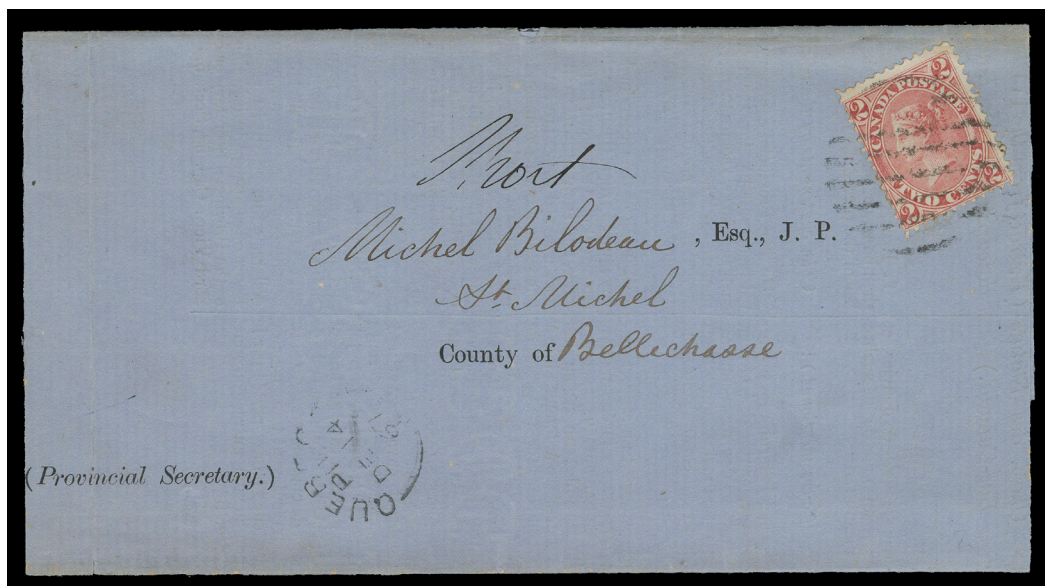 2 2
CANADA POSTAGE
TWO CENTS
2 2
Mort
Michel Bilodeau, Esq., J. P.
St. Michel
County of Bellechasse
(Provincial Secretary.)